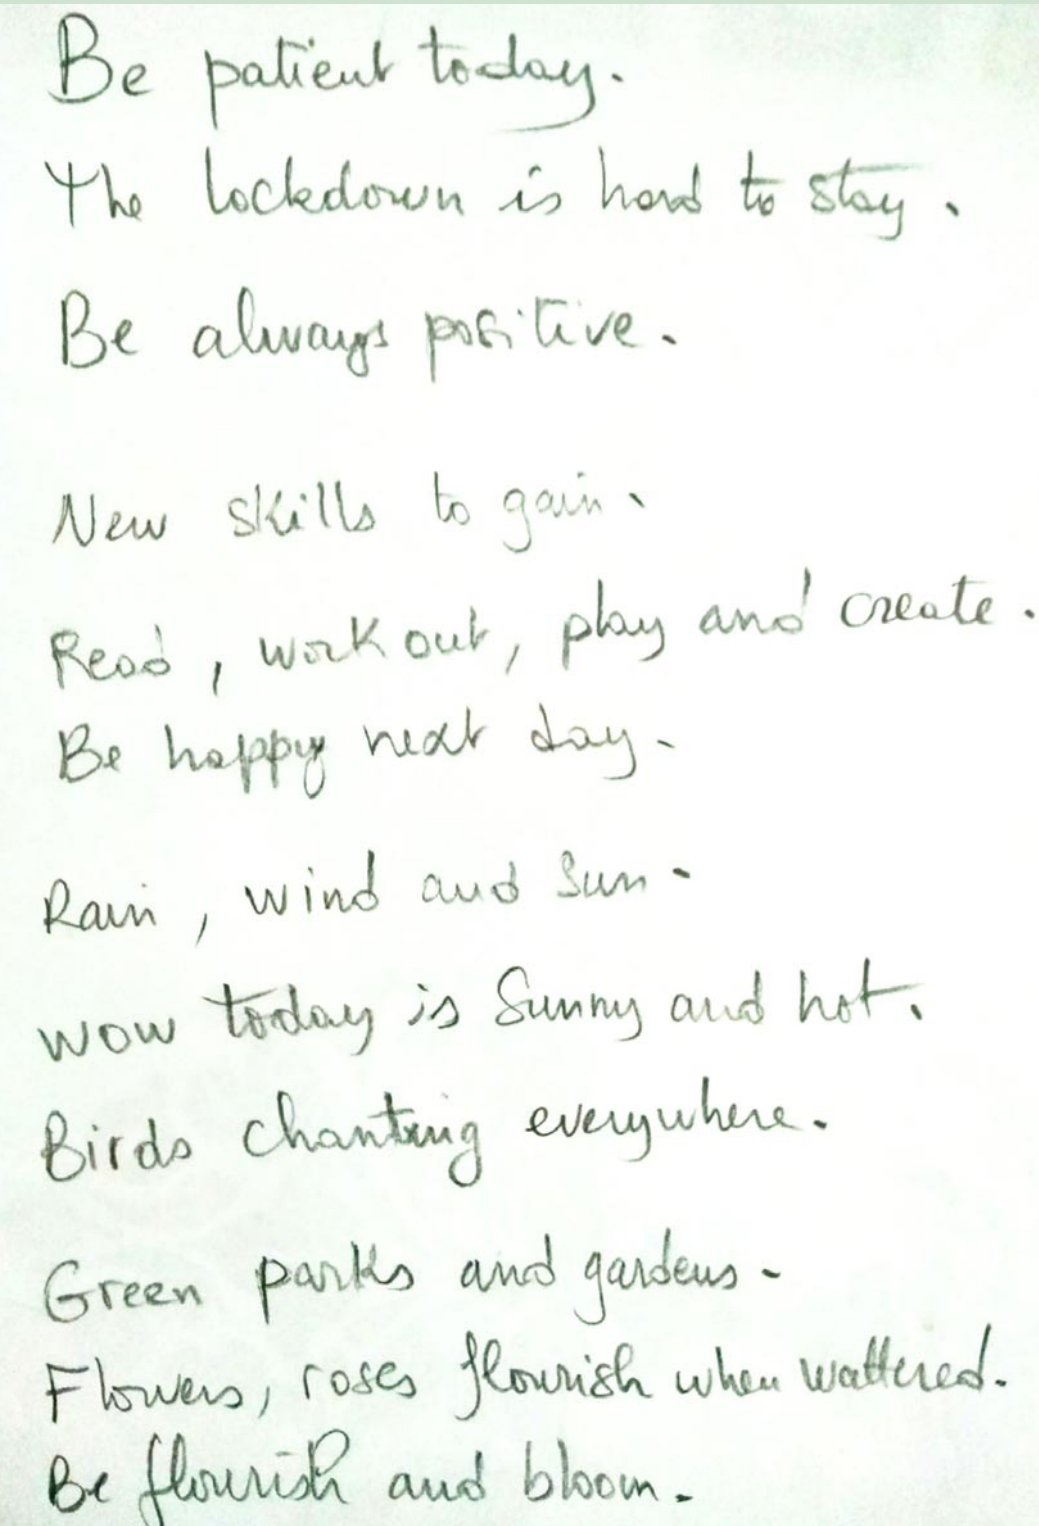 Be patient today.
The lockdown is hard to stay.
Be always positive.
New skills to gain.
Read, work out, play and create.
Be happy next day.
Rain, wind and sun.
Wow today is Sunny and hot.
Birds chanting everywhere.
Green parks and gardens.
Flowers, roses flourish when wattered.
Be flourish and bloom.